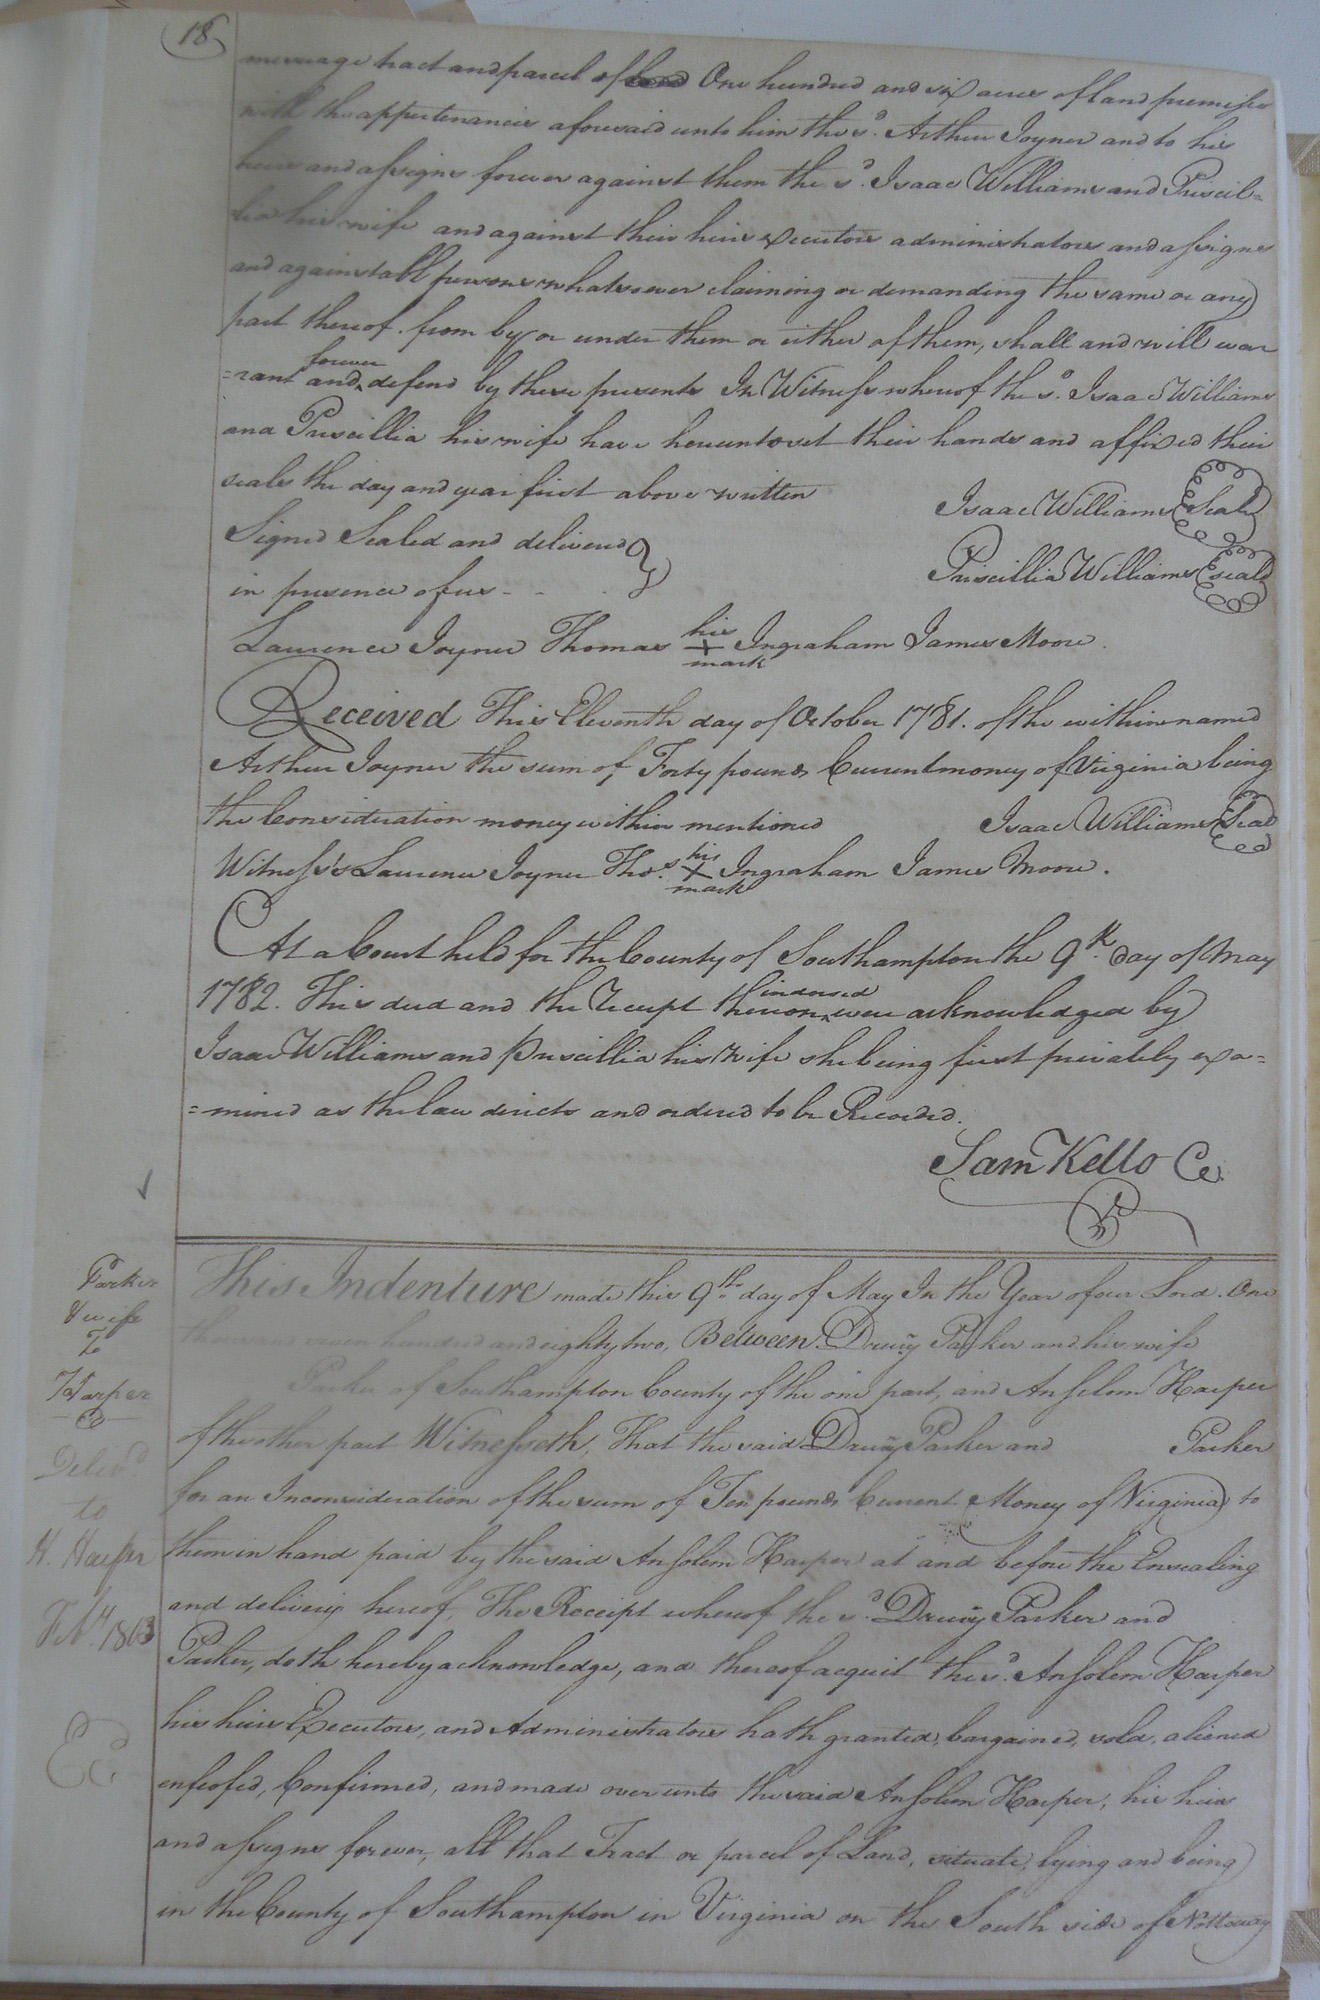 18
messuage tract and parcel of One hundred and six acres of land premises
with the appertenancies aforesaid unto him the sd. Arthur Joyner and to his
heirs and assigns forever against them the sd. Isaac Williams and Priscil=
lia his wife and against their heirs executors administrators and assigns
and against all persons whatsoever claiming or demanding the same or any
part thereof. from by or under them or either of them, shall and will war
forever
=rant and defend by these presents In Witness whereof the sd. Isaac Williams
and Priscillia his wife have hereunto set their hands and affixed their
seales the day and year first above written Isaac Williams Seal
Signed Sealed and delivered
in presence of us - - . Priscillia Williams seal
Laurence Joyner Thomas his + mark Ingraham James Moore.
Received This Eleventh day of October 1781. of the within named
Arthur Joyner the sum of Forty pounds Current money of Virginia being
the Consideration money within mentioned Isaac Williams Seal
Witness's Laurence Joyner Thos. his + mark Ingraham James Moore.
At a Court held for the County of Southampton the 9th. day of May
indorsed
1782. This deed and the receipt thereon were acknowledged by
Isaac Williams and Priscillia his wife she being first privately exa=
=mined as the law directs and ordered to be Recorded.
Sam Kello Cc.
Parker
& wife
To
Harper
Deliv'd
to
H. Harper
Feby. 1803
Ex
This Indenture made this 9th. day of May In the Year of our Lord. One
thousand seven hundred and eighty two, Between Drury Parker and his wife
Parker of Southampton County of the one part, and Anselem Harper
of the other part Witnesseth, That the said Drury Parker and Parker
for an Inconsideration of the sum of Ten pounds Current Money of Virginia to
them in hand paid by the said Anselem Harper at and before the Ensealing
and delivery hereof, The Receipt whereof the sd. Drury Parker and
Parker, doth hereby acknowledge, and thereof acquit the sd. Anselem Harper
his heirs Executors, and Administrators hath granted, bargained, sold, aliened
enfeofed, Confirmed, and made over unto the said Anselem Harper, his heirs
and assigns forever, all that Tract or parcel of Land, situate, lying and being
in the County of Southampton in Virginia on the South side of Nottoway